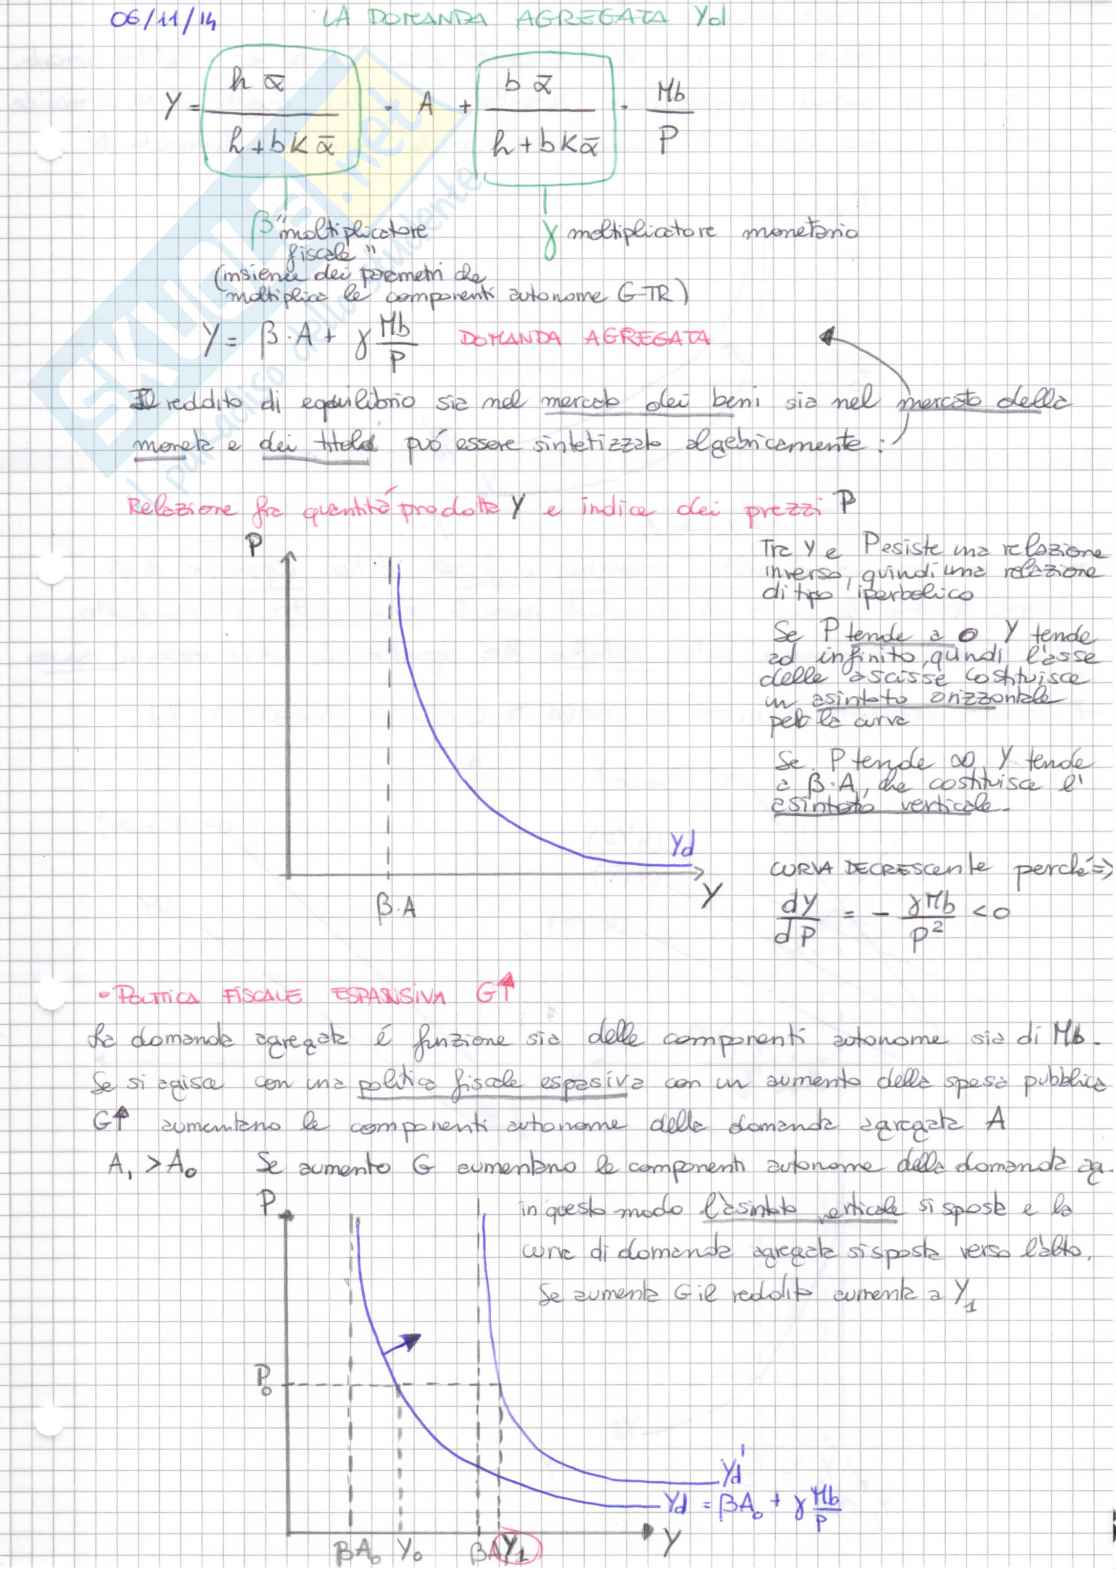 06/11/14 LA DOMANDA AGREGATA Yd
Y = h ᾱ / h + b K ᾱ · A + b ᾱ / h + b K ᾱ · Mb / P
β "moltiplicatore γ moltiplicatore monetario
fiscale"
(insieme dei parametri che
moltiplica le componenti autonome G-TR)
Y = β · A + γ Mb / P DOMANDA AGREGATA
Il reddito di equilibrio sia nel mercato dei beni sia nel mercato della
moneta e dei titoli può essere sintetizzato algebricamente:
Relazione fra quantità prodotta Y e indice dei prezzi P
P
Tra Y e P esiste una relazione
inversa, quindi una relazione
di tipo iperbolico
Se P tende a 0 Y tende
ad infinito, quindi l'asse
delle ascisse costituisce
un asintoto orizzontale
per la curva
Se P tende ∞ Y tende
a β·A, che costituisce l'
asintoto verticale.
Yd
Y
β·A
CURVA DECRESCENTE perché ⇒
dY / dP = - γMb / P² < 0
- POLITICA FISCALE ESPANSIVA G↑
La domanda agregata é funzione sia delle componenti autonome sia di Mb.
Se si agisce con una politica fiscale espasiva con un aumento della spesa pubblica
G↑ aumentano le componenti autonome della domanda agregata A
A₁ > A₀ Se aumento G aumentano le componenti autonome della domanda ag.
P in questo modo l'asintoto verticale si sposta e la
curva di domanda agregata si sposta verso l'alto.
Se aumenta G il reddito aumenta a Y₁
P₀
Yd'
Yd = βA₀ + γ Mb / P
βA₀ Y₀ βA₁ Y₁ Y
SKUOLA.net
il paradiso dello studente